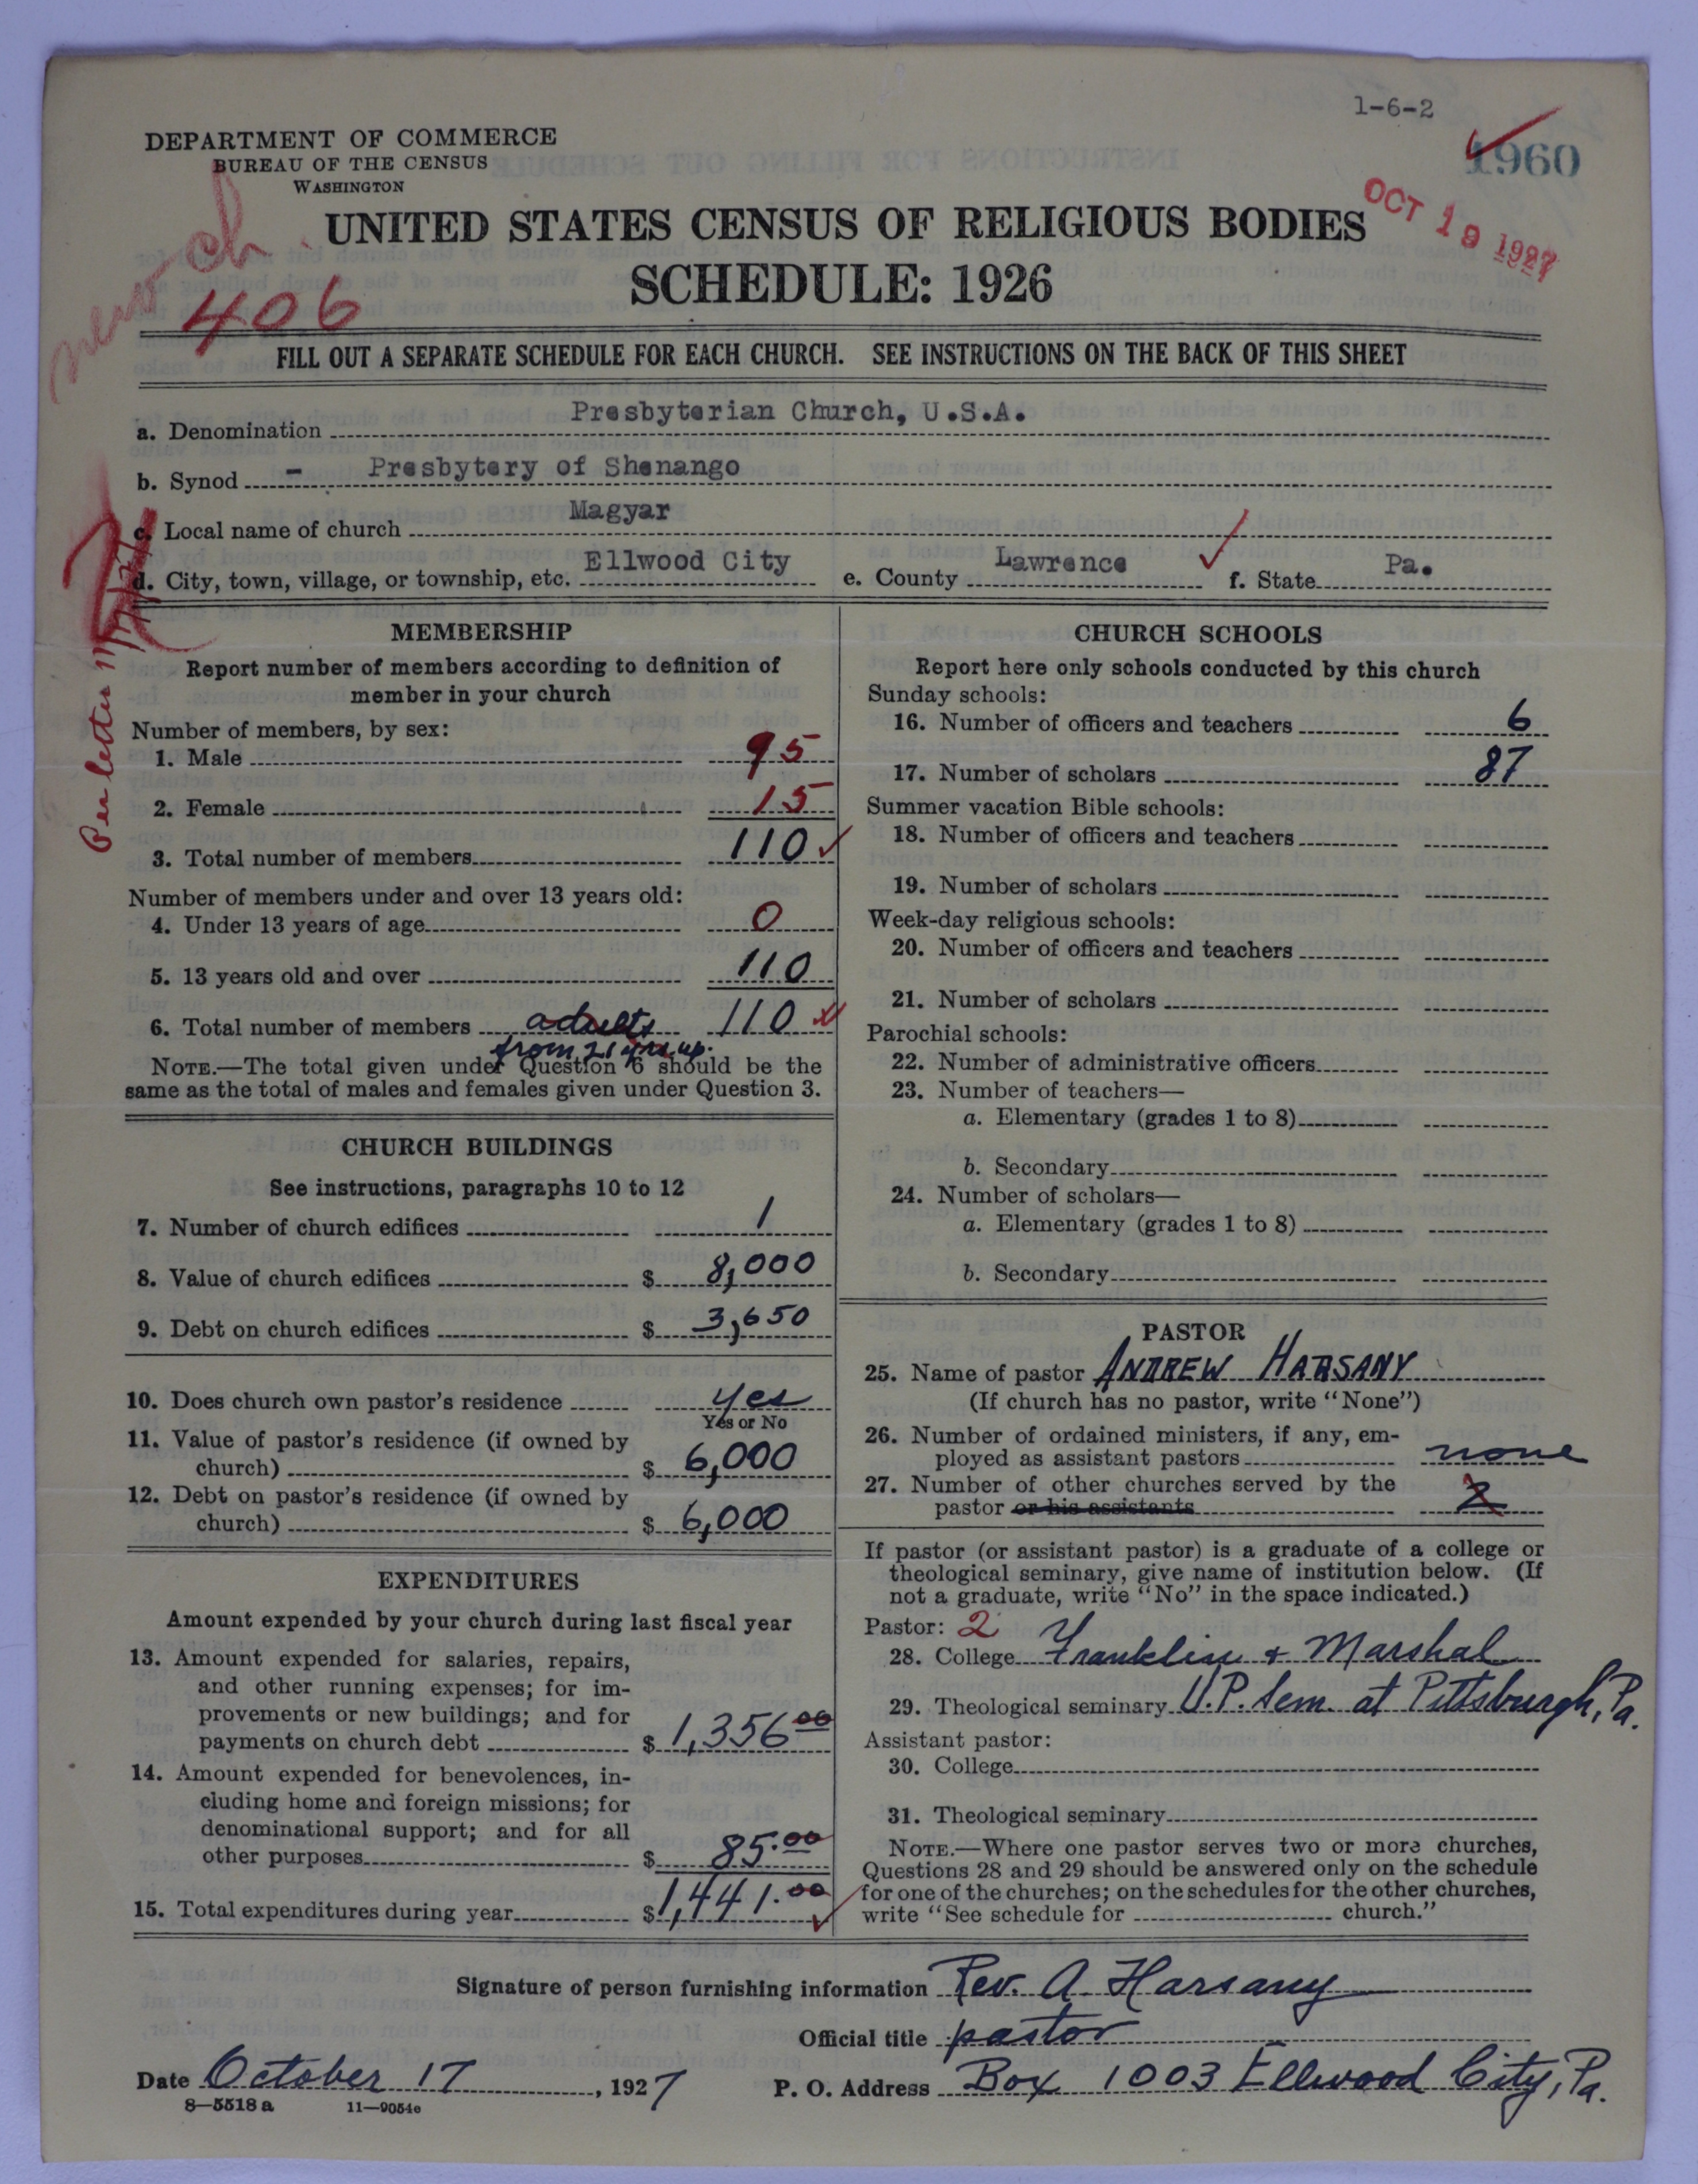 1-6-2
1960
DEPARTMENT OF COMMERCE
BUREAU OF THE CENSUS
WASHINGTON
OCT 19 1927
new ch
406
UNITED STATES CENSUS OF RELIGIOUS BODIES
SCHEDULE: 1926
FILL OUT A SEPARATE SCHEDULE FOR EACH CHURCH. SEE INSTRUCTIONS ON THE BACK OF THIS SHEET
a. Denomination Presbyterian Church, U.S.A.
b. Synod - Presbytery of Shenango
c. Local name of church Magyar
d. City, town, village, or township, etc. Ellwood City e. County Lawrence f. State Pa.
Per letter
MEMBERSHIP
Report number of members according to definition of
member in your church
Number of members, by sex:
1. Male 95
2. Female 15
3. Total number of members 110
Number of members under and over 13 years old:
4. Under 13 years of age 0
5. 13 years old and over 110
6. Total number of members adults 110
from 21 yrs up.
NOTE.—The total given under Question 6 should be the
same as the total of males and females given under Question 3.
CHURCH BUILDINGS
See instructions, paragraphs 10 to 12
7. Number of church edifices 1
8. Value of church edifices $ 8,000
9. Debt on church edifices $ 3,650
10. Does church own pastor's residence yes
Yes or No
11. Value of pastor's residence (if owned by
church) $ 6,000
12. Debt on pastor's residence (if owned by
church) $ 6,000
EXPENDITURES
Amount expended by your church during last fiscal year
13. Amount expended for salaries, repairs,
and other running expenses; for im-
provements or new buildings; and for
payments on church debt $ 1,356 00
14. Amount expended for benevolences, in-
cluding home and foreign missions; for
denominational support; and for all
other purposes $ 85.00
15. Total expenditures during year $ 1,441.00
CHURCH SCHOOLS
Report here only schools conducted by this church
Sunday schools:
16. Number of officers and teachers 6
17. Number of scholars 87
Summer vacation Bible schools:
18. Number of officers and teachers
19. Number of scholars
Week-day religious schools:
20. Number of officers and teachers
21. Number of scholars
Parochial schools:
22. Number of administrative officers
23. Number of teachers—
a. Elementary (grades 1 to 8)
b. Secondary
24. Number of scholars—
a. Elementary (grades 1 to 8)
b. Secondary
PASTOR
25. Name of pastor ANDREW HARSANY
(If church has no pastor, write "None")
26. Number of ordained ministers, if any, em-
ployed as assistant pastors none
27. Number of other churches served by the
pastor or his assistants 2
If pastor (or assistant pastor) is a graduate of a college or
theological seminary, give name of institution below. (If
not a graduate, write "No" in the space indicated.)
Pastor: 2
28. College Franklin & Marshal
29. Theological seminary U.P. Sem. at Pittsburgh, Pa.
Assistant pastor:
30. College
31. Theological seminary
NOTE.—Where one pastor serves two or more churches,
Questions 28 and 29 should be answered only on the schedule
for one of the churches; on the schedules for the other churches,
write "See schedule for church."
Signature of person furnishing information Rev. A Harsany
Official title pastor
Date October 17, 1927 P. O. Address Box 1003 Ellwood City, Pa.
8—5518 a 11—9054e